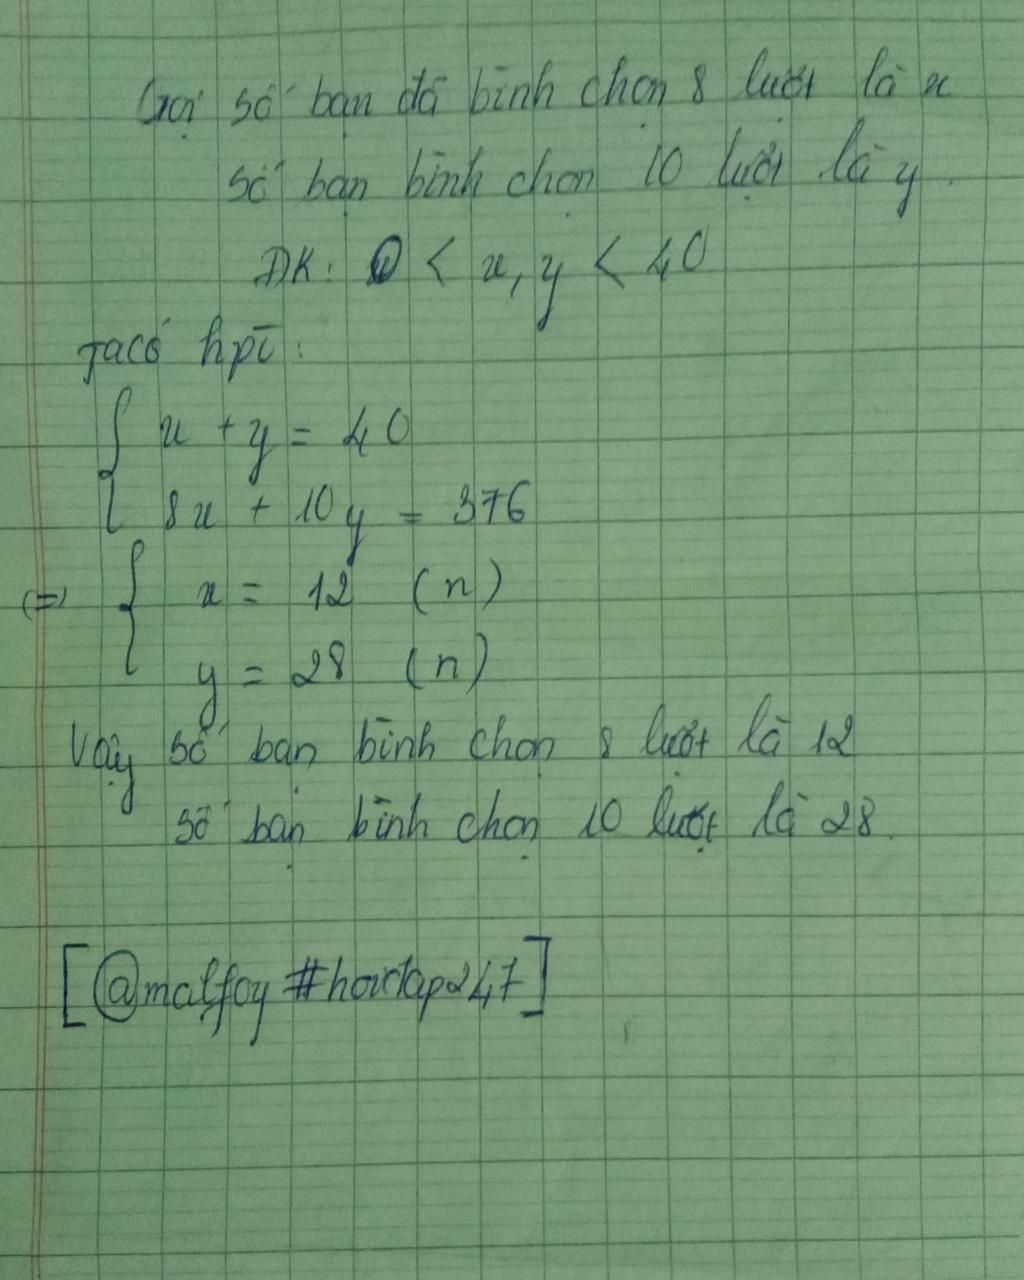 Gọi số bạn đã bình chọn 8 lượt là x
số bạn bình chọn 10 lượt là y.
ĐK: 0 < x, y < 40
Ta có hpt:
{ x + y = 40
8x + 10y = 376
(=) { x = 12 (n)
y = 28 (n)
Vậy số bạn bình chọn 8 lượt là 12
số bạn bình chọn 10 lượt là 28.
[@malfoy #hoidap247]